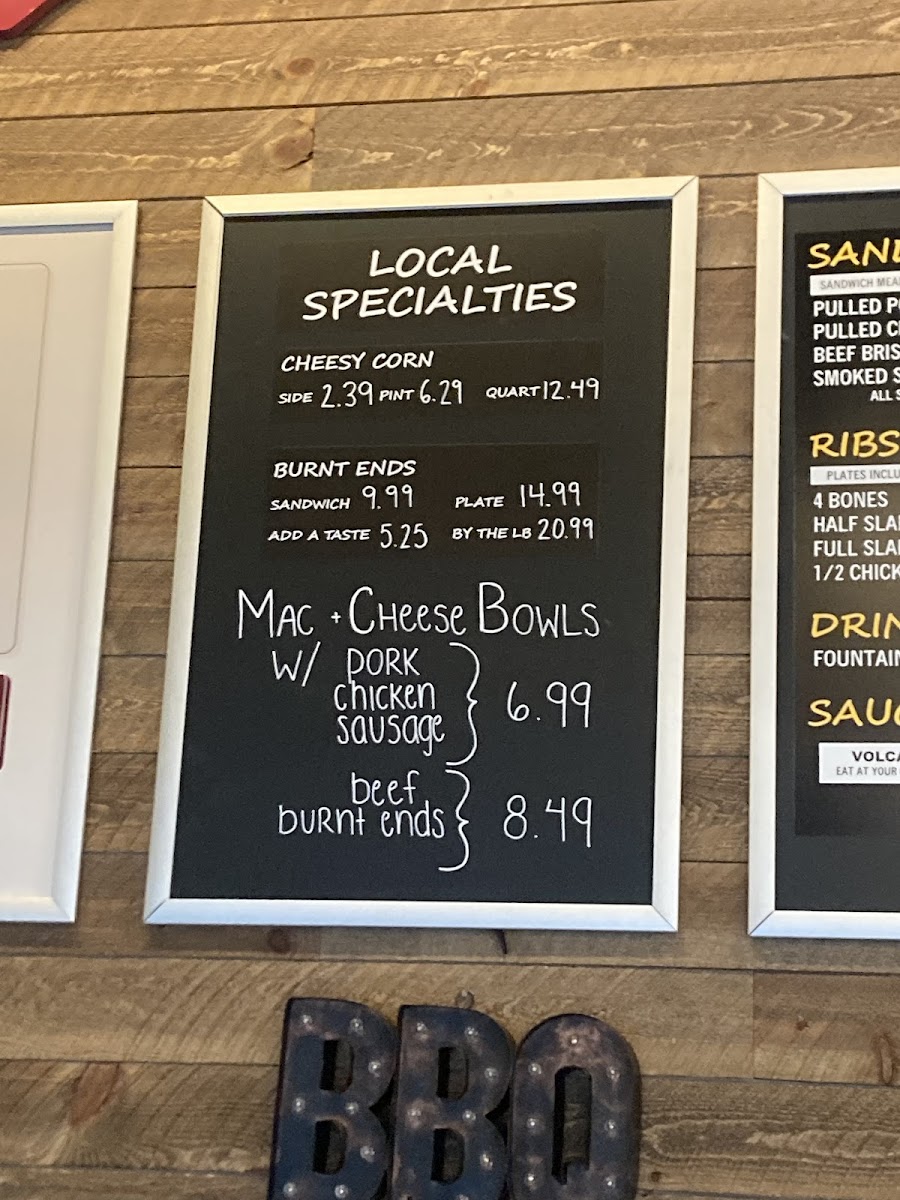 LOCAL
SPECIALTIES
CHEESY CORN
SIDE 2.39 PINT 6.29 QUART 12.49
BURNT ENDS
SANDWICH 9.99 PLATE 14.99
ADD A TASTE 5.25 BY THE LB 20.99
MAC + CHEESE BOWLS
W/ PORK
chicken
sausage } 6.99
beef
burnt ends } 8.49
SAND
SANDWICH MEA
PULLED P
PULLED C
BEEF BRIS
SMOKED S
ALL S
RIBS
PLATES INCLU
4 BONES
HALF SLA
FULL SLA
1/2 CHICK
DRIN
FOUNTAIN
SAUC
VOLCA
EAT AT YOUR
BBQ